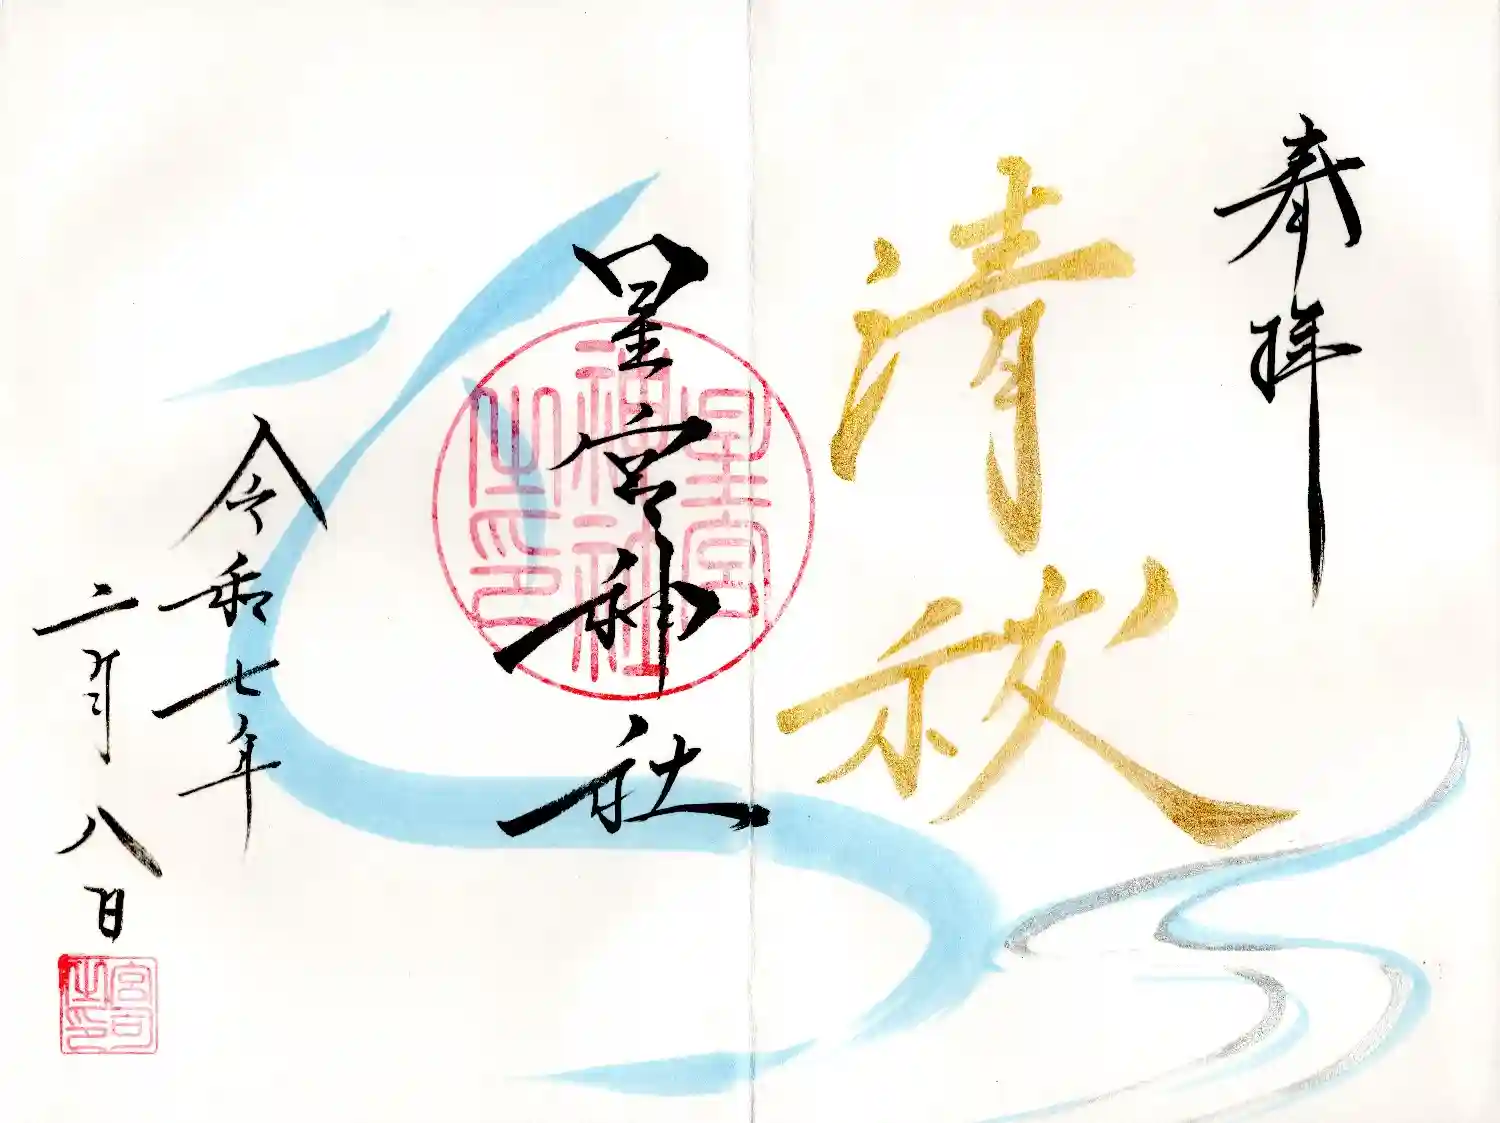 奉拝
清祓
星宮神社
星宮神社之印
令和七年
二月八日
宮司之印